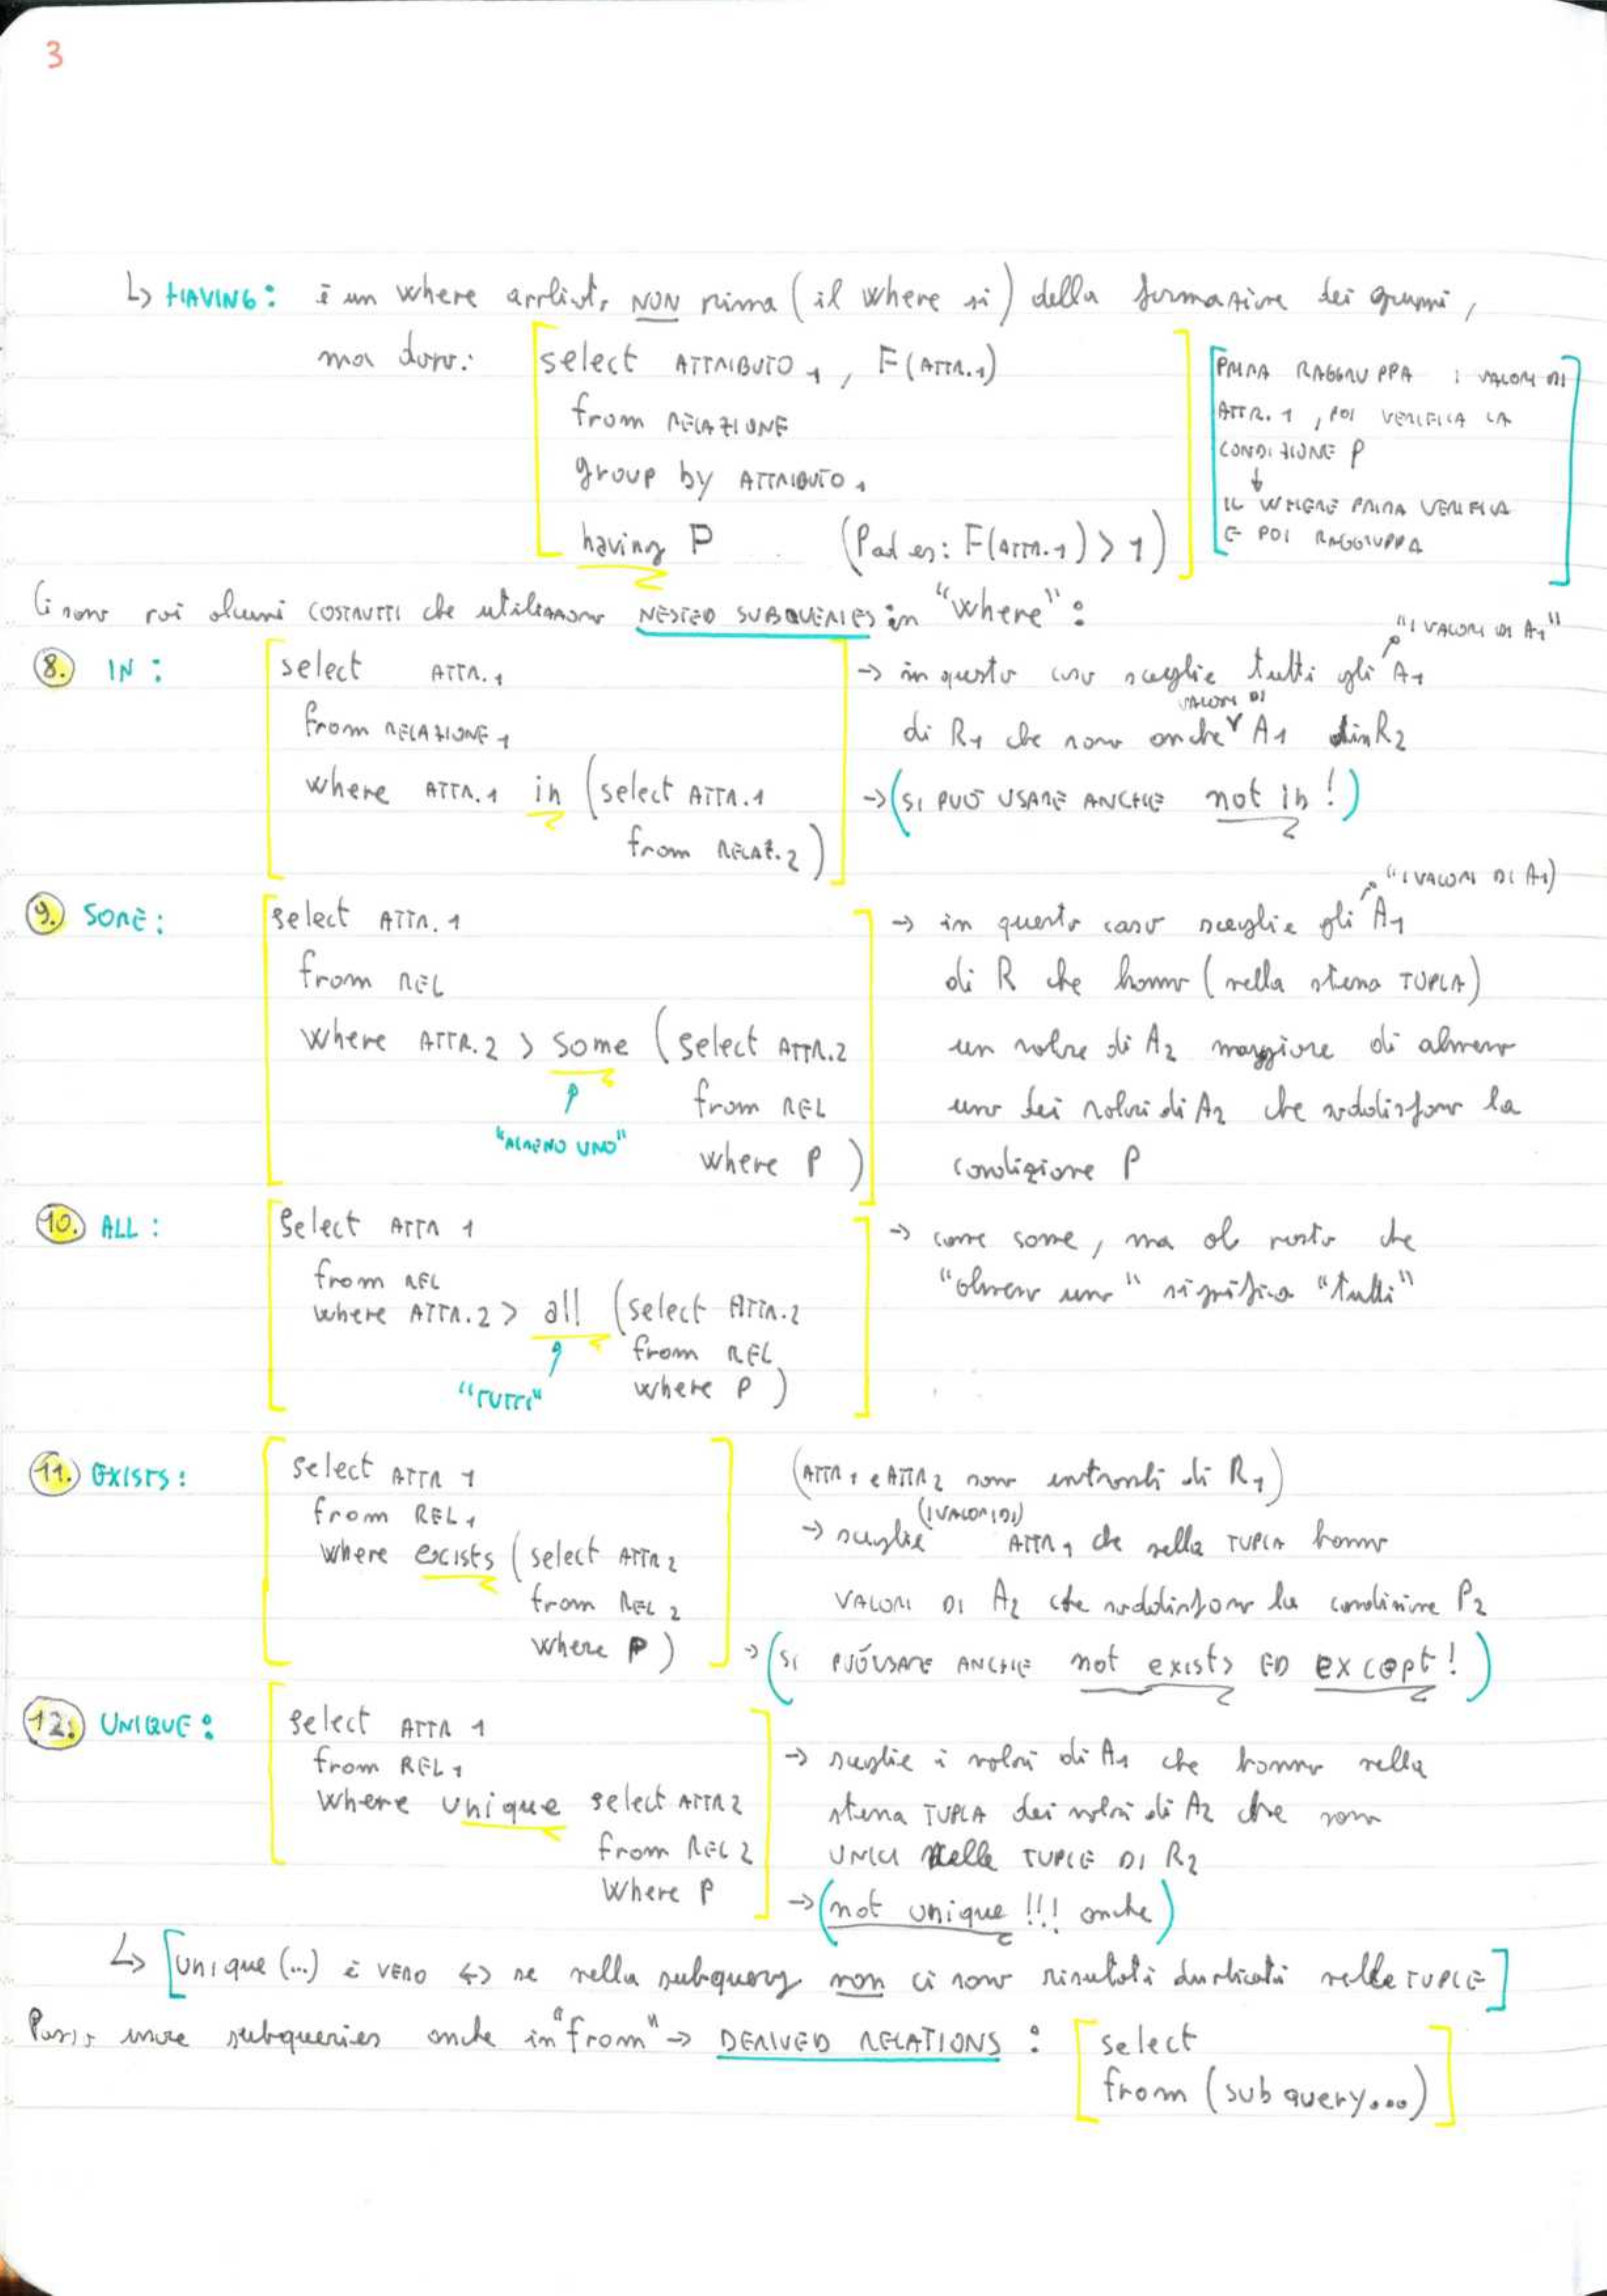 3
↳ HAVING: è un where applicato NON prima (il where sì) della formazione dei gruppi,
ma dopo:
select ATTRIBUTO 1, F(ATTR.1)
from RELAZIONE
group by ATTRIBUTO 1
having P (P ad es: F(ATTR.1) > 1)
PRIMA RAGGRUPPA I VALORI DI
ATTR. 1, POI VERIFICA LA
CONDIZIONE P
↓
IL WHERE PRIMA VERIFICA
E POI RAGGRUPPA
Ci sono poi alcuni COSTRUTTI che utilizzano NESTED SUBQUERIES in "where":
8. IN:
select ATTR.1
from RELAZIONE 1
where ATTR.1 in (select ATTR.1
from RELAZ.2)
"I VALORI DI A1"
→ in questo caso sceglie tutti gli A1
VALORI DI
di R1 che sono anche A1 in R2
→ (SI PUÒ USARE ANCHE not in!)
9. SOME:
select ATTR.1
from REL
where ATTR.2 > some (select ATTR.2
from REL
"ALMENO UNO"
where P)
"I VALORI DI A1)
→ in questo caso sceglie gli A1
di R che hanno (nella stessa TUPLA)
un valore di A2 maggiore di almeno
uno dei valori di A2 che soddisfano la
condizione P
10. ALL:
select ATTR 1
from REL
where ATTR.2 > all (select ATTR.2
from REL
"TUTTI"
where P)
→ come some, ma al posto che
"almeno uno" significa "tutti"
11. EXISTS:
select ATTR 1
from REL 1
where exists (select ATTR 2
from REL 2
where P)
(ATTR 1 e ATTR 2 sono entrambi di R1)
(I VALORI DI)
→ sceglie ATTR 1 che nella TUPLA hanno
VALORI DI A2 che soddisfano la condizione P2
→ (SI PUÒ USARE ANCHE not exists ED except!)
12. UNIQUE:
select ATTR 1
from REL 1
where unique select ATTR 2
from REL 2
where P
→ sceglie i valori di A1 che hanno nella
stessa TUPLA dei valori di A2 che sono
UNICI nelle TUPLE DI R2
→ (not unique !!! anche)
↳ [unique (...) è VERO ↔ se nella subquery non ci sono risultati duplicati nelle TUPLE]
Posso usare subqueries anche in "from" → DERIVED RELATIONS:
select
from (subquery...)